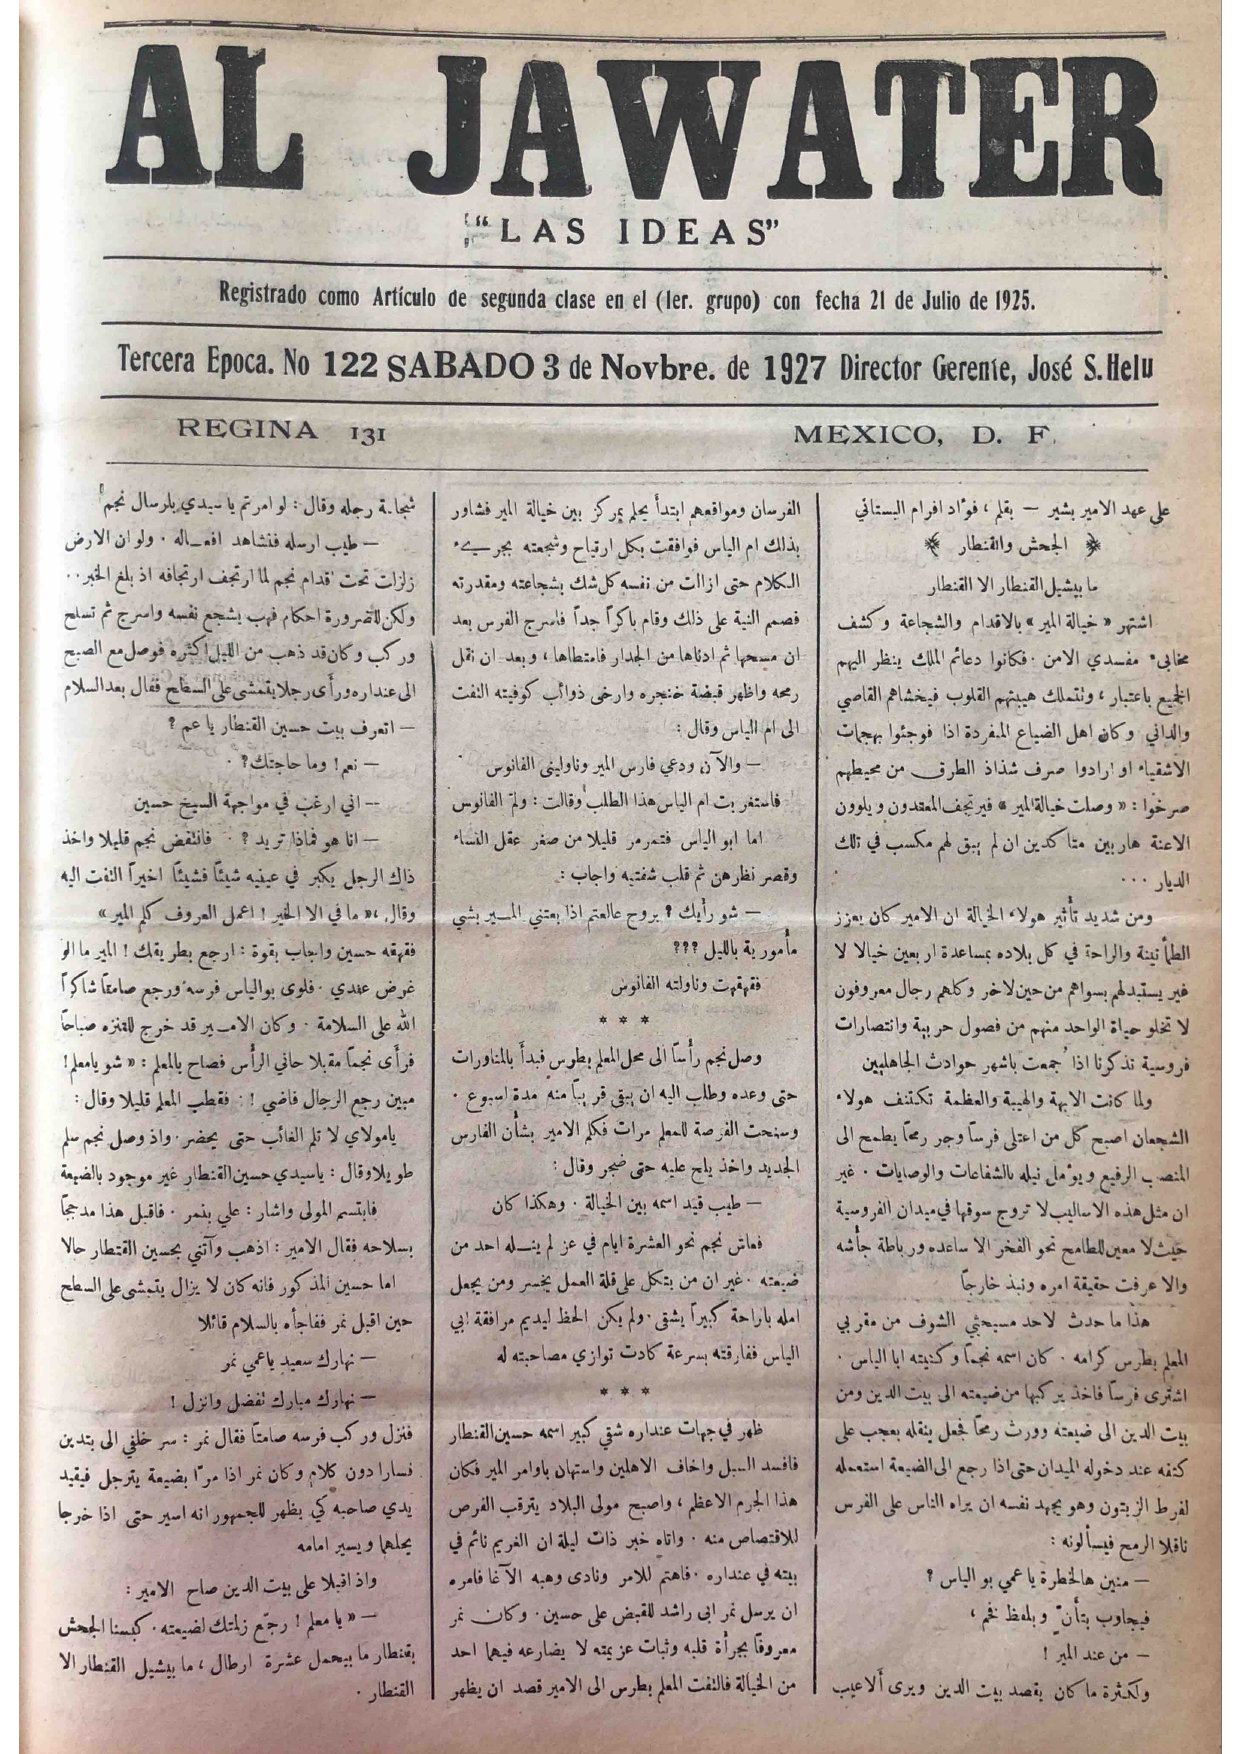 AL JAWATER
"LAS IDEAS"
Registrado como Artículo de segunda clase en el (1er. grupo) con fecha 21 de Julio de 1925.
Tercera Epoca. No 122 SABADO 3 de Novbre. de 1927 Director Gerente, José S. Helu
REGINA 131 MEXICO, D. F.
على عهد الامير بشير — بقلم، فؤاد افرام البستاني
الجحش والقنطار
ما بيشيل القنطار الا القنطار
اشتهر « خيالة المير » بالاقدام والشجاعة وكشف
مخابىء مفسدي الامن ٠ فكانوا دعائم الملك ينظر اليهم
الجميع باعتبار، وتتملك هيبتهم القلوب فيخشاهم القاصي
والداني وكان اهل الضياع المنفردة اذا فوجئوا بهجمات
الاشقياء او ارادوا صرف شذاذ الطرق من محيطهم
صرخوا : « وصلت خيالة المير » فيرتجف المعتدون ويلوون
الاعنة هاربين متأكدين ان لم يبق لهم مكسب في تلك
الديار ٠٠٠
ومن شديد تأثير هولاء الخيالة ان الامير كان يعزز
الطأنينة والراحة في كل بلاده بمساعدة اربعين خيالا لا
غير يستبدلهم بسواهم من حين لاخر وكلهم رجال معروفون
لا تخلو حياة الواحد منهم من فصول حربية وانتصارات
فروسية تذكرنا اذا جمعت باشهر حوادث الجاهليين
ولما كانت الابهة والهيبة والعظمة تكتنف هولاء
الشجعان اصبح كل من اعتلى فرساً وجر رمحاً يطمح الى
المنصب الرفيع ويؤمل نيله بالشفاعات والوصايات ٠ غير
ان مثل هذه الاساليب لا تروج سوقها في ميدان الفروسية
حيث لا معين للطامح نحو الفخر الا ساعده ورباطة جأشه
والا عرفت حقيقة امره ونبذ خارجاً
هذا ما حدث لاحد مسيحيي الشوف من مقربي
المعلم بطرس كرامه ٠ كان اسمه نجماً وكنيته ابا الياس ٠
اشترى فرساً فاخذ يركبها من ضيعته الى بيت الدين ومن
بيت الدين الى ضيعته وورث رمحاً فجعل ينقله بعجب على
كتفه عند دخوله الميدان حتى اذا رجع الى الضيعة استعمله
لفرط الزيتون وهو يجهد نفسه ان يراه الناس على الفرس
ناقلا الرمح فيسألونه :
— منين هالخطرة يا عمي بو الياس ؟
فيجاوب بتأنّ وبلفظ فخم،
— من عند المير !
ولكثرة ما كان يقصد بيت الدين ويرى ألاعيب
الفرسان ومواقعهم ابتدأ يحلم بمركز بين خيالة المير فشاور
بذلك ام الياس فوافقت بكل ارتياح وشجعته بجريء
الكلام حتى ازالت من نفسه كل شك بشجاعته ومقدرته
فصمم النية على ذلك وقام باكراً جداً فاسرج الفرس بعد
ان مسحها ثم ادناها من الجدار فامتطاها، وبعد ان نقل
رمحه واظهر قبضة خنجره وارخى ذوائب كوفيته التفت
الى ام الياس وقال :
— والآن ودعي فارس المير وناوليني الفانوس
فاستغربت ام الياس هذا الطلب وقالت : ولم الفانوس
اما ابو الياس فتمرمر قليلا من صغر عقل النساء
وقصر نظرهن ثم قلب شفتيه واجاب :
— شو رأيك ؟ بروح عالعتم اذا بعتني المير بشي
مأمورية بالليل ؟؟؟
فقهقهت وناولته الفانوس
* * *
وصل نجم رأساً الى محل المعلم بطرس فبدأ بالمناورات
حتى وعده وطلب اليه ان يبقى قريباً منه مدة اسبوع ٠
وسنحت الفرصة للمعلم مرات فكلم الامير بشأن الفارس
الجديد واخذ يلح عليه حتى ضجر وقال :
— طيب قيد اسمه بين الخيالة ٠ وهكذا كان
فعاش نجم نحو العشرة ايام في عز لم ينله احد من
ضيعته ٠ غير ان من يتكل على قلة العمل يخسر ومن يجعل
امله براحة كبيراً يشقى ٠ ولم يكن الحظ ليديم مرافقة ابي
الياس ففارقته بسرعة كادت توازي مصاحبته له
* * *
ظهر في جهات عنداره شقي كبير اسمه حسين القنطار
فافسد السبل واخاف الاهلين واستهان باوامر المير فكان
هذا الجرم الاعظم، واصبح مولى البلاد يترقب الفرص
للاقتصاص منه ٠ واتاه خبر ذات ليلة ان الغريم نائم في
بيته في عنداره ٠ فاهتم للامر ونادى وهبه الآغا فامره
ان يرسل نمر ابي راشد للقبض على حسين ٠ وكان نمر
معروفاً بجرأة قلبه وثبات عزيمته لا يضارعه فيهما احد
من الخيالة فالتفت المعلم بطرس الى الامير قصد ان يظهر
شجاعة رجله وقال : لو امرتم يا سيدي بارسال نجم
— طيب ارسله فنشاهد افعاله ٠ ولو ان الارض
زلزات تحت اقدام نجم لما ارتجف ارتجافه اذ بلغ الخبر ٠٠
ولكن للضرورة احكام فهب يشجع نفسه واسرج ثم تسلح
وركب وكان قد ذهب من الليل اكثره فوصل مع الصبح
الى عنداره ورأى رجلا يتمشى على السطح فقال بعد السلام
— اتعرف بيت حسين القنطار يا عم ؟
— نعم ! وما حاجتك ؟ ٠
— اني ارغب في مواجهة السيخ حسين
— انا هو فماذا تريد ؟ ٠ فانتفض نجم قليلا واخذ
ذاك الرجل يكبر في عينيه شيئاً فشيئاً اخيراً التفت اليه
وقال، « ما في الا الخير ! اعملي المعروف كلم المير »
فقهقه حسين واجاب بقوة : ارجع بطريقك ! المير ما الو
غرض عندي ٠ فلوى بو الياس فرسه ورجع صامتاً شاكراً
الله على السلامة ٠ وكان الامير قد خرج للتنزه صباحاً
فرأى نجماً مقبلا حاني الرأس فصاح بالمعلم : « شو يا معلم !
مبين رجع الرجال فاضي ! ٠ فقطب المعلم قليلا وقال :
يا مولاي لا تلم الغائب حتى يحضر ٠ واذ وصل نجم سلم
طويلا وقال : يا سيدي حسين القنطار غير موجود بالضيعة
فابتسم المولى واشار : علي بنمر ٠ فاقبل هذا مدججاً
بسلاحه فقال الامير : اذهب وآتني بحسين القنطار حالا
اما حسين المذكور فانه كان لا يزال يتمشى على السطح
حين اقبل نمر ففاجأه بالسلام قائلا
— نهارك سعيد يا عمي نمر
— نهارك مبارك تفضل وانزل !
فنزل وركب فرسه صامتاً فقال نمر : سر خلفي الى بتدين
فسارا دون كلام وكان نمر اذا مرّا بضيعة يترجل فيقيد
يدي صاحبه كي يظهر للجمهور انه اسير حتى اذا خرجا
يحلهما ويسير امامه
واذ اقبلا على بيت الدين صاح الامير :
— « يا معلم ! رجّع زلمتك لضيعته ٠ كبسنا الجحش
بقنطار ما بيحمل عشرة ارطال، ما بيشيل القنطار الا
القنطار ٠